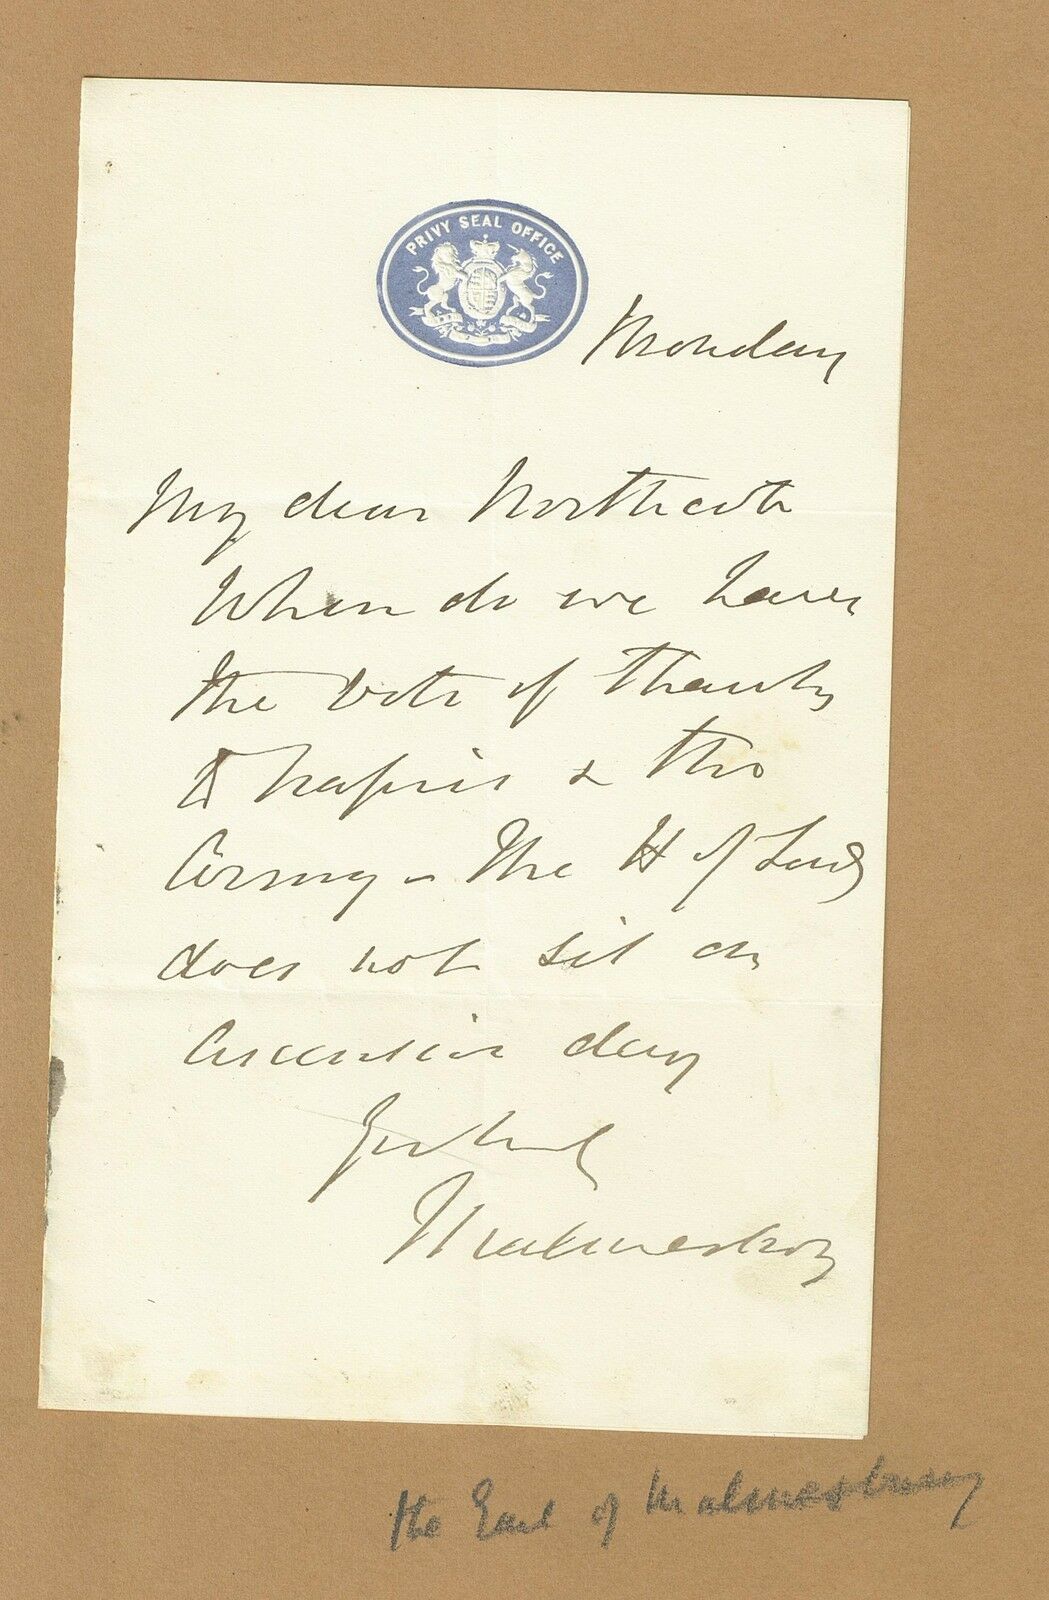 PRIVY SEAL OFFICE
Monday
My dear Northcote
When do we have
the Vote of Thanks
to Napier & the
Army - The H of Lords
does not sit on
Ascension day
Malmesbury
the Earl of Malmesbury